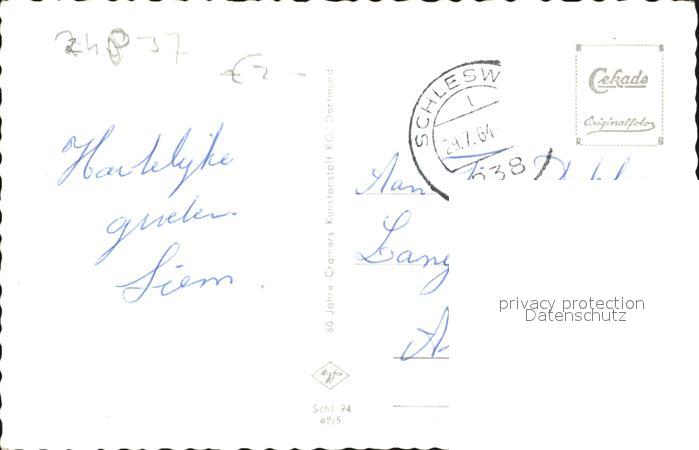 €2 -
Hartelijke
groeten
Siem.
60 Jahre Cramers Kunstanstalt KG, Dortmund
Agfa
Schl 94
SCHLESW
1
29.7.64
Cekade
Originalfoto
Aan
Lang
A
privacy protection
Datenschutz